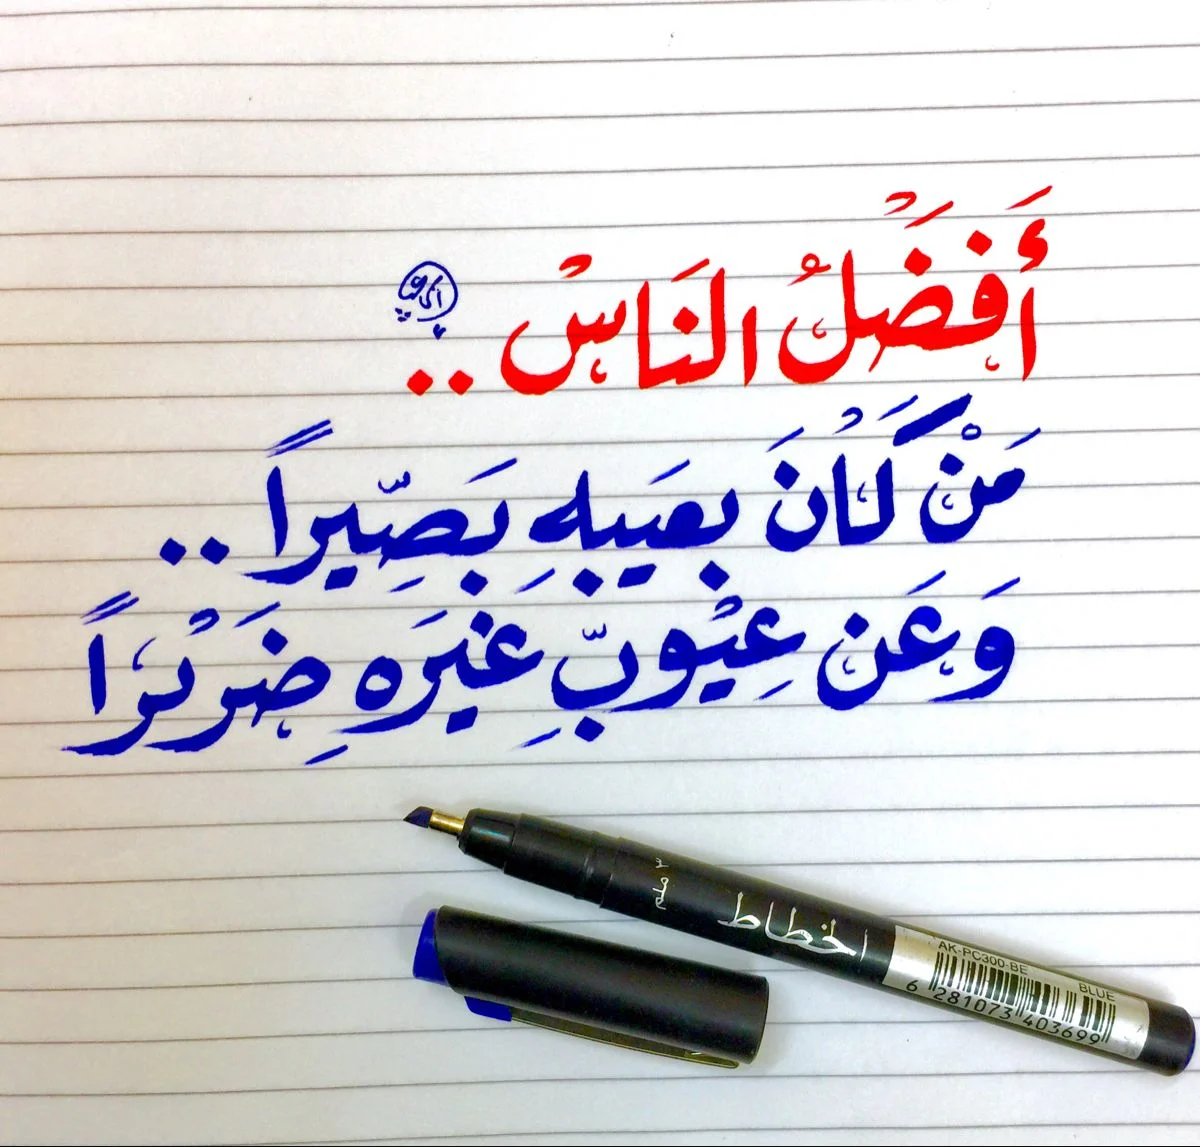 أَفْضَلُ النَاسْ ..
مَنْ كَانَ بعيَبهِ بَصِّيراً ..
وَعَن عِيْوبِّ غيَرَهِ ضَرْيراً
الخطاط
٣ ملم
AK-PC300-BE
BLUE
6 281073 403699